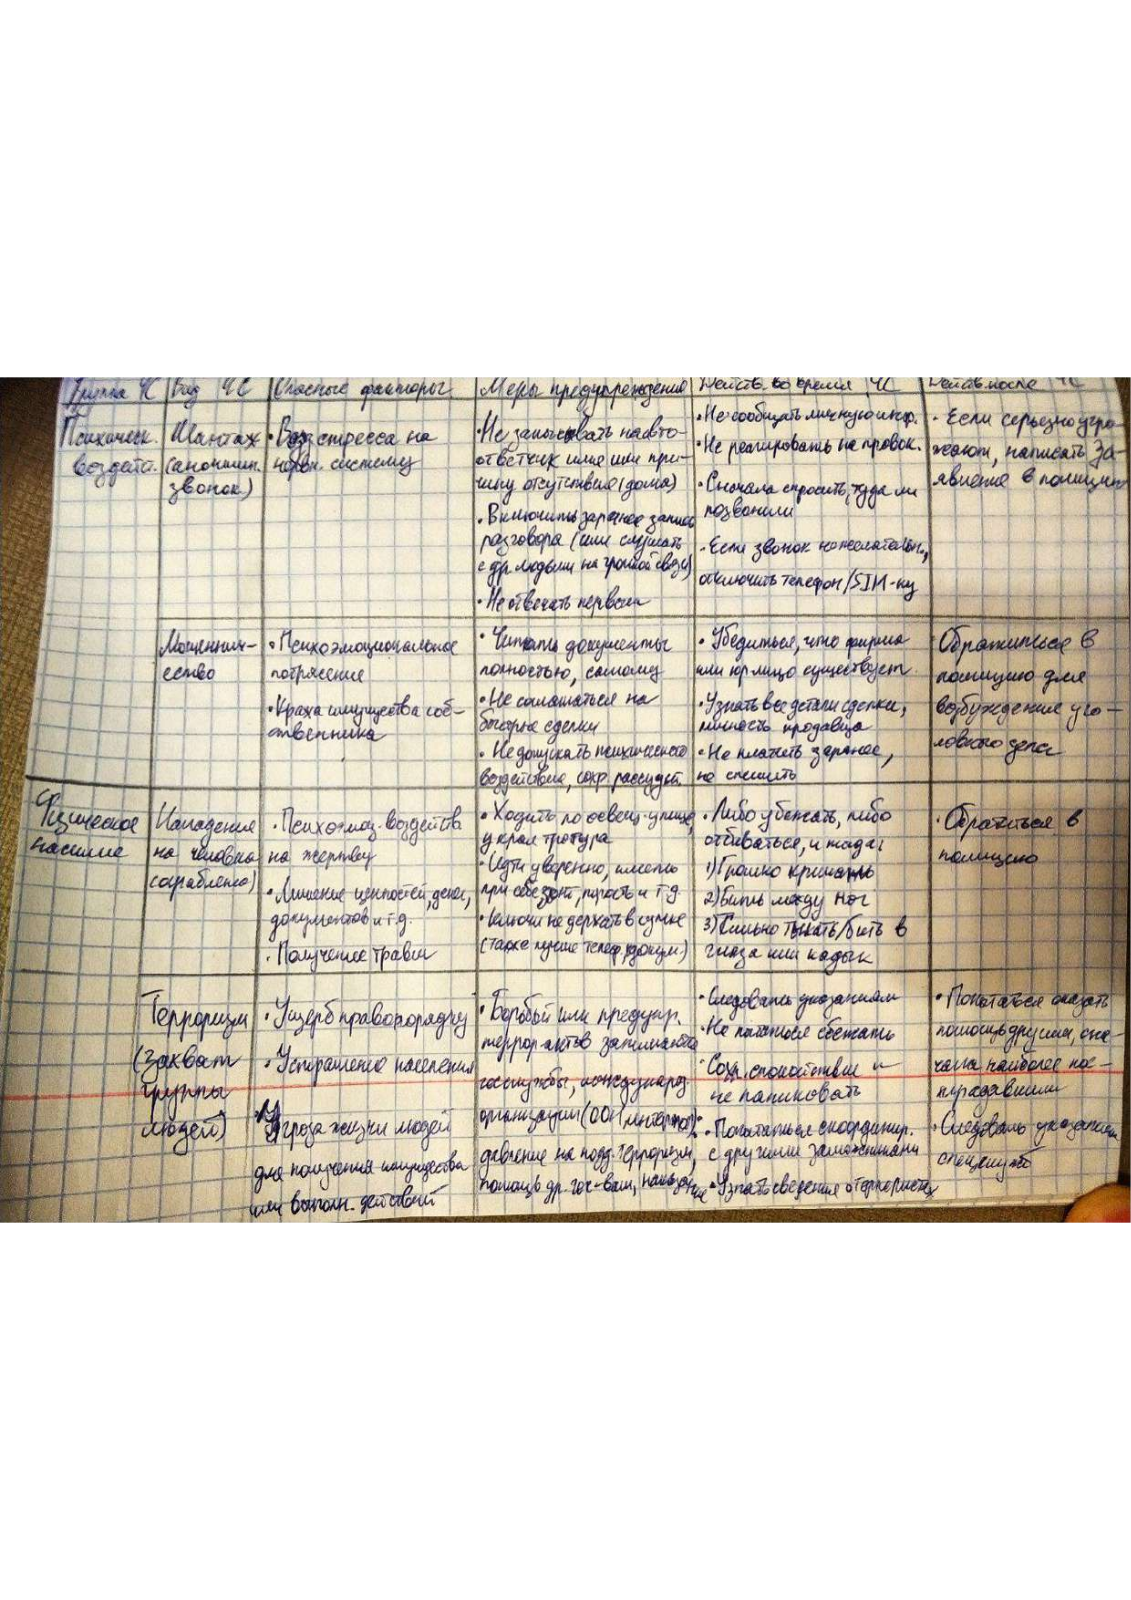 Группа ЧС
Вид ЧС
Опасные факторы
Меры предупреждения
Действ. во время ЧС
Действ. после ЧС
Психическ.
воздейст.
Шантаж
(анонимн.
звонок)
• Возд стресса на
нервн. систему
• Не записывать на авто-
ответчик имя или при-
чину отсутствия (дома)
• Включить заранее запись
разговора (или слушать
с др. людьми на громкой связи)
• Не отвечать первым
• Не сообщать личную инф.
• Не реагировать на провок.
• Сначала спросить, туда ли
позвонили
• Если звонок нежелателен,
отключить телефон/SIM-ку
• Если серьезно угро-
жают, написать за-
явление в полицию
Мошенни-
ество
• Психоэмоциональное
потрясение
• Кража имущества соб-
ственника
• Читать документы
полностью, самому
• Не соглашаться на
быстрые сделки
• Не допускать психического
воздействия, сохр. рассудит.
• Убедиться, что фирма
или юр. лицо существует
• Узнать все детали сделки,
личность продавца
• Не платить заранее,
не спешить
Обратиться в
полицию для
возбуждения уго-
ловного дела
Физическое
насилие
Нападение
на человека
(ограбление)
• Психоэмоц. воздейств
на жертву
• Лишение ценностей, денег,
документов и т.д.
• Получение травм
• Ходить по освещ. улице,
у края тротуара
• Идти уверенно, иметь
при себе зонт, трость и т.д.
• Ключи не держать в сумке
(также лучше телеф, докум)
• Либо убежать, либо
отбиваться, и тогда:
1) Громко кричать
2) Бить между ног
3) Сильно тыкать/бить в
глаза или кадык
• Обратиться в
полицию
Терроризм
(захват
группы
людей)
• Ущерб правопорядку
• Устрашение населения
• Угроза жизни людей
для получения имущества
или выполн. действий
• Борьбой или предупр.
террор. актов занимаются
госслужбы, международ.
организации (ООН, интерпол):
давление на подд. терроризм,
помощь др. гос-вам,
• Следовать указаниям
• Не пытаться сбежать
• Сохр. спокойствие и
не паниковать
• Попытаться скоординир.
с другими заложниками
• Узнать сведения о террористах
• Попытаться оказать
помощь другим, сна-
чала наиболее пос-
традавшим
• Следовать указаниям
спецслужб